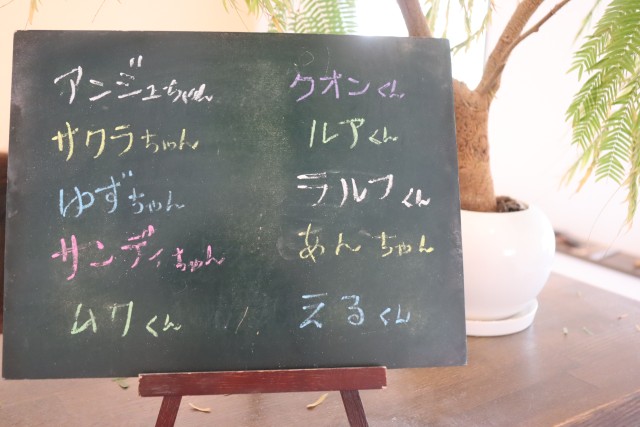 アンジュちゃん
サクラちゃん
ゆずちゃん
サンディちゃん
ムクくん
クオンくん
ルアくん
ラルフくん
あんちゃん
えるくん